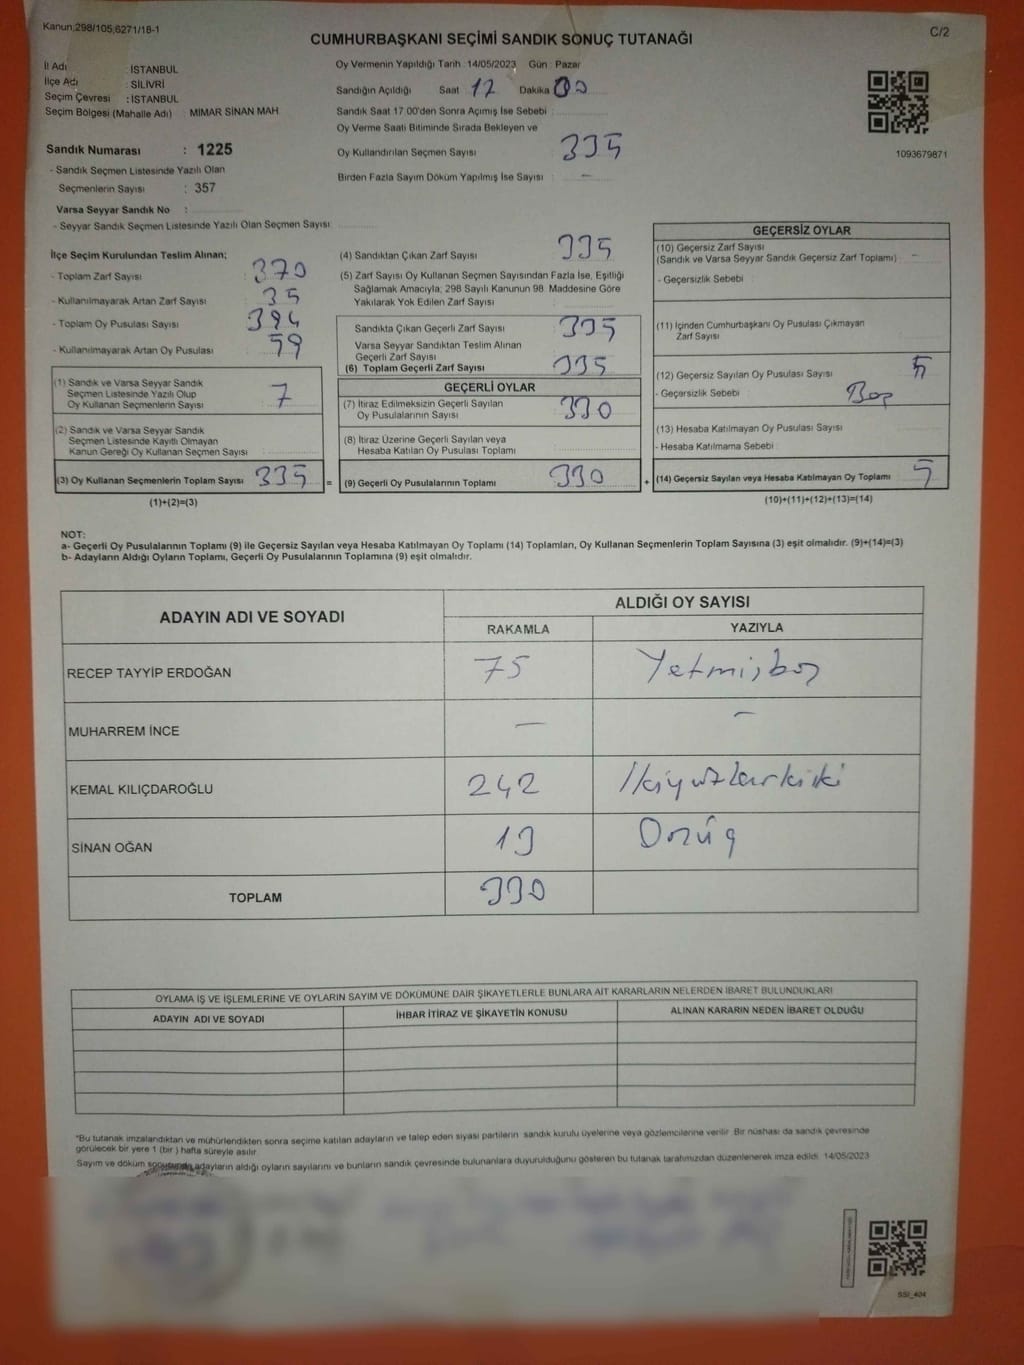 Kanun;298/105,6271/18-1
C/2
CUMHURBAŞKANI SEÇİMİ SANDIK SONUÇ TUTANAĞI
İl Adı : İSTANBUL
İlçe Adı : SİLİVRİ
Seçim Çevresi : İSTANBUL
Seçim Bölgesi (Mahalle Adı) : MİMAR SİNAN MAH
Oy Vermenin Yapıldığı Tarih : 14/05/2023 Gün : Pazar
Sandığın Açıldığı Saat 17 Dakika 00
Sandık Saat 17.00'den Sonra Açımış İse Sebebi :
Oy Verme Saati Bitiminde Sırada Bekleyen ve
Oy Kullandırılan Seçmen Sayısı : 335
Birden Fazla Sayım Döküm Yapılmış İse Sayısı : -
1093679871
Sandık Numarası : 1225
- Sandık Seçmen Listesinde Yazılı Olan
Seçmenlerin Sayısı : 357
Varsa Seyyar Sandık No :
- Seyyar Sandık Seçmen Listesinde Yazılı Olan Seçmen Sayısı
İlçe Seçim Kurulundan Teslim Alınan;
- Toplam Zarf Sayısı : 370
- Kullanılmayarak Artan Zarf Sayısı : 35
- Toplam Oy Pusulası Sayısı : 394
- Kullanılmayarak Artan Oy Pusulası : 59
(1) Sandık ve Varsa Seyyar Sandık
Seçmen Listesinde Yazılı Olup
Oy Kullanan Seçmenlerin Sayısı : 7
(2) Sandık ve Varsa Seyyar Sandık
Seçmen Listesinde Kayıtlı Olmayan
Kanun Gereği Oy Kullanan Seçmen Sayısı :
(3) Oy Kullanan Seçmenlerin Toplam Sayısı 335 =
(1)+(2)=(3)
(4) Sandıktan Çıkan Zarf Sayısı : 335
(5) Zarf Sayısı Oy Kullanan Seçmen Sayısından Fazla İse, Eşitliği
Sağlamak Amacıyla, 298 Sayılı Kanunun 98. Maddesine Göre
Yakılarak Yok Edilen Zarf Sayısı :
Sandıkta Çıkan Geçerli Zarf Sayısı : 335
Varsa Seyyar Sandıktan Teslim Alınan
Geçerli Zarf Sayısı
(6) Toplam Geçerli Zarf Sayısı : 335
GEÇERLİ OYLAR
(7) İtiraz Edilmeksizin Geçerli Sayılan
Oy Pusulalarının Sayısı : 330
(8) İtiraz Üzerine Geçerli Sayılan veya
Hesaba Katılan Oy Pusulası Toplamı
(9) Geçerli Oy Pusulalarının Toplamı 330 +
GEÇERSİZ OYLAR
(10) Geçersiz Zarf Sayısı
(Sandık ve Varsa Seyyar Sandık Geçersiz Zarf Toplamı) : -
- Geçersizlik Sebebi :
(11) İçinden Cumhurbaşkanı Oy Pusulası Çıkmayan
Zarf Sayısı :
(12) Geçersiz Sayılan Oy Pusulası Sayısı 5
- Geçersizlik Sebebi : Boş
(13) Hesaba Katılmayan Oy Pusulası Sayısı :
- Hesaba Katılmama Sebebi :
(14) Geçersiz Sayılan veya Hesaba Katılmayan Oy Toplamı 5
(10)+(11)+(12)+(13)=(14)
NOT:
a- Geçerli Oy Pusulalarının Toplamı (9) ile Geçersiz Sayılan veya Hesaba Katılmayan Oy Toplamı (14) Toplamları, Oy Kullanan Seçmenlerin Toplam Sayısına (3) eşit olmalıdır. (9)+(14)=(3)
b- Adayların Aldığı Oyların Toplamı, Geçerli Oy Pusulalarının Toplamına (9) eşit olmalıdır.
ADAYIN ADI VE SOYADI
ALDIĞI OY SAYISI
RAKAMLA YAZIYLA
RECEP TAYYİP ERDOĞAN 75 Yetmişbeş
MUHARREM İNCE - -
KEMAL KILIÇDAROĞLU 242 İkiyüzkırkiki
SİNAN OĞAN 13 Onüç
TOPLAM 330
OYLAMA İŞ VE İŞLEMLERİNE VE OYLARIN SAYIM VE DÖKÜMÜNE DAİR ŞİKAYETLERLE BUNLARA AİT KARARLARIN NELERDEN İBARET BULUNDUKLARI
ADAYIN ADI VE SOYADI İHBAR İTİRAZ VE ŞİKAYETİN KONUSU ALINAN KARARIN NEDEN İBARET OLDUĞU
*Bu tutanak imzalandıktan ve mühürlendikten sonra seçime katılan adayların ve talep eden siyasi partilerin sandık kurulu üyelerine veya gözlemcilerine verilir. Bir nüshası da sandık çevresinde
görülecek bir yere 1 (bir ) hafta süreyle asılır.
Sayım ve döküm sonucunda adayların aldığı oyların sayılarını ve bunların sandık çevresinde bulunanlara duyurulduğunu gösteren bu tutanak tarafımızdan düzenlenerek imza edildi. 14/05/2023
SSI_404